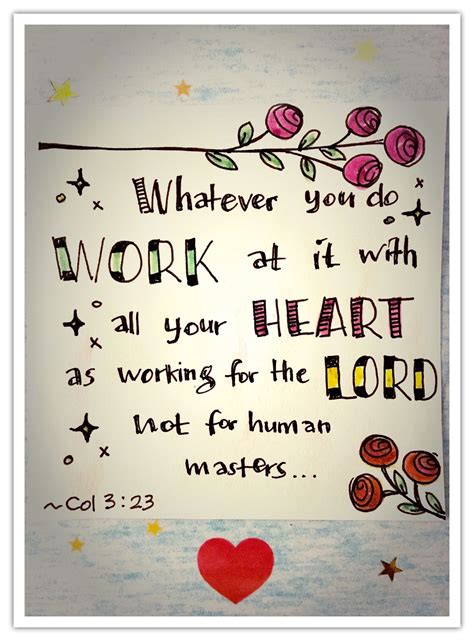 Whatever you do
WORK at it with
all your HEART
as working for the LORD
not for human
masters...
~Col 3:23